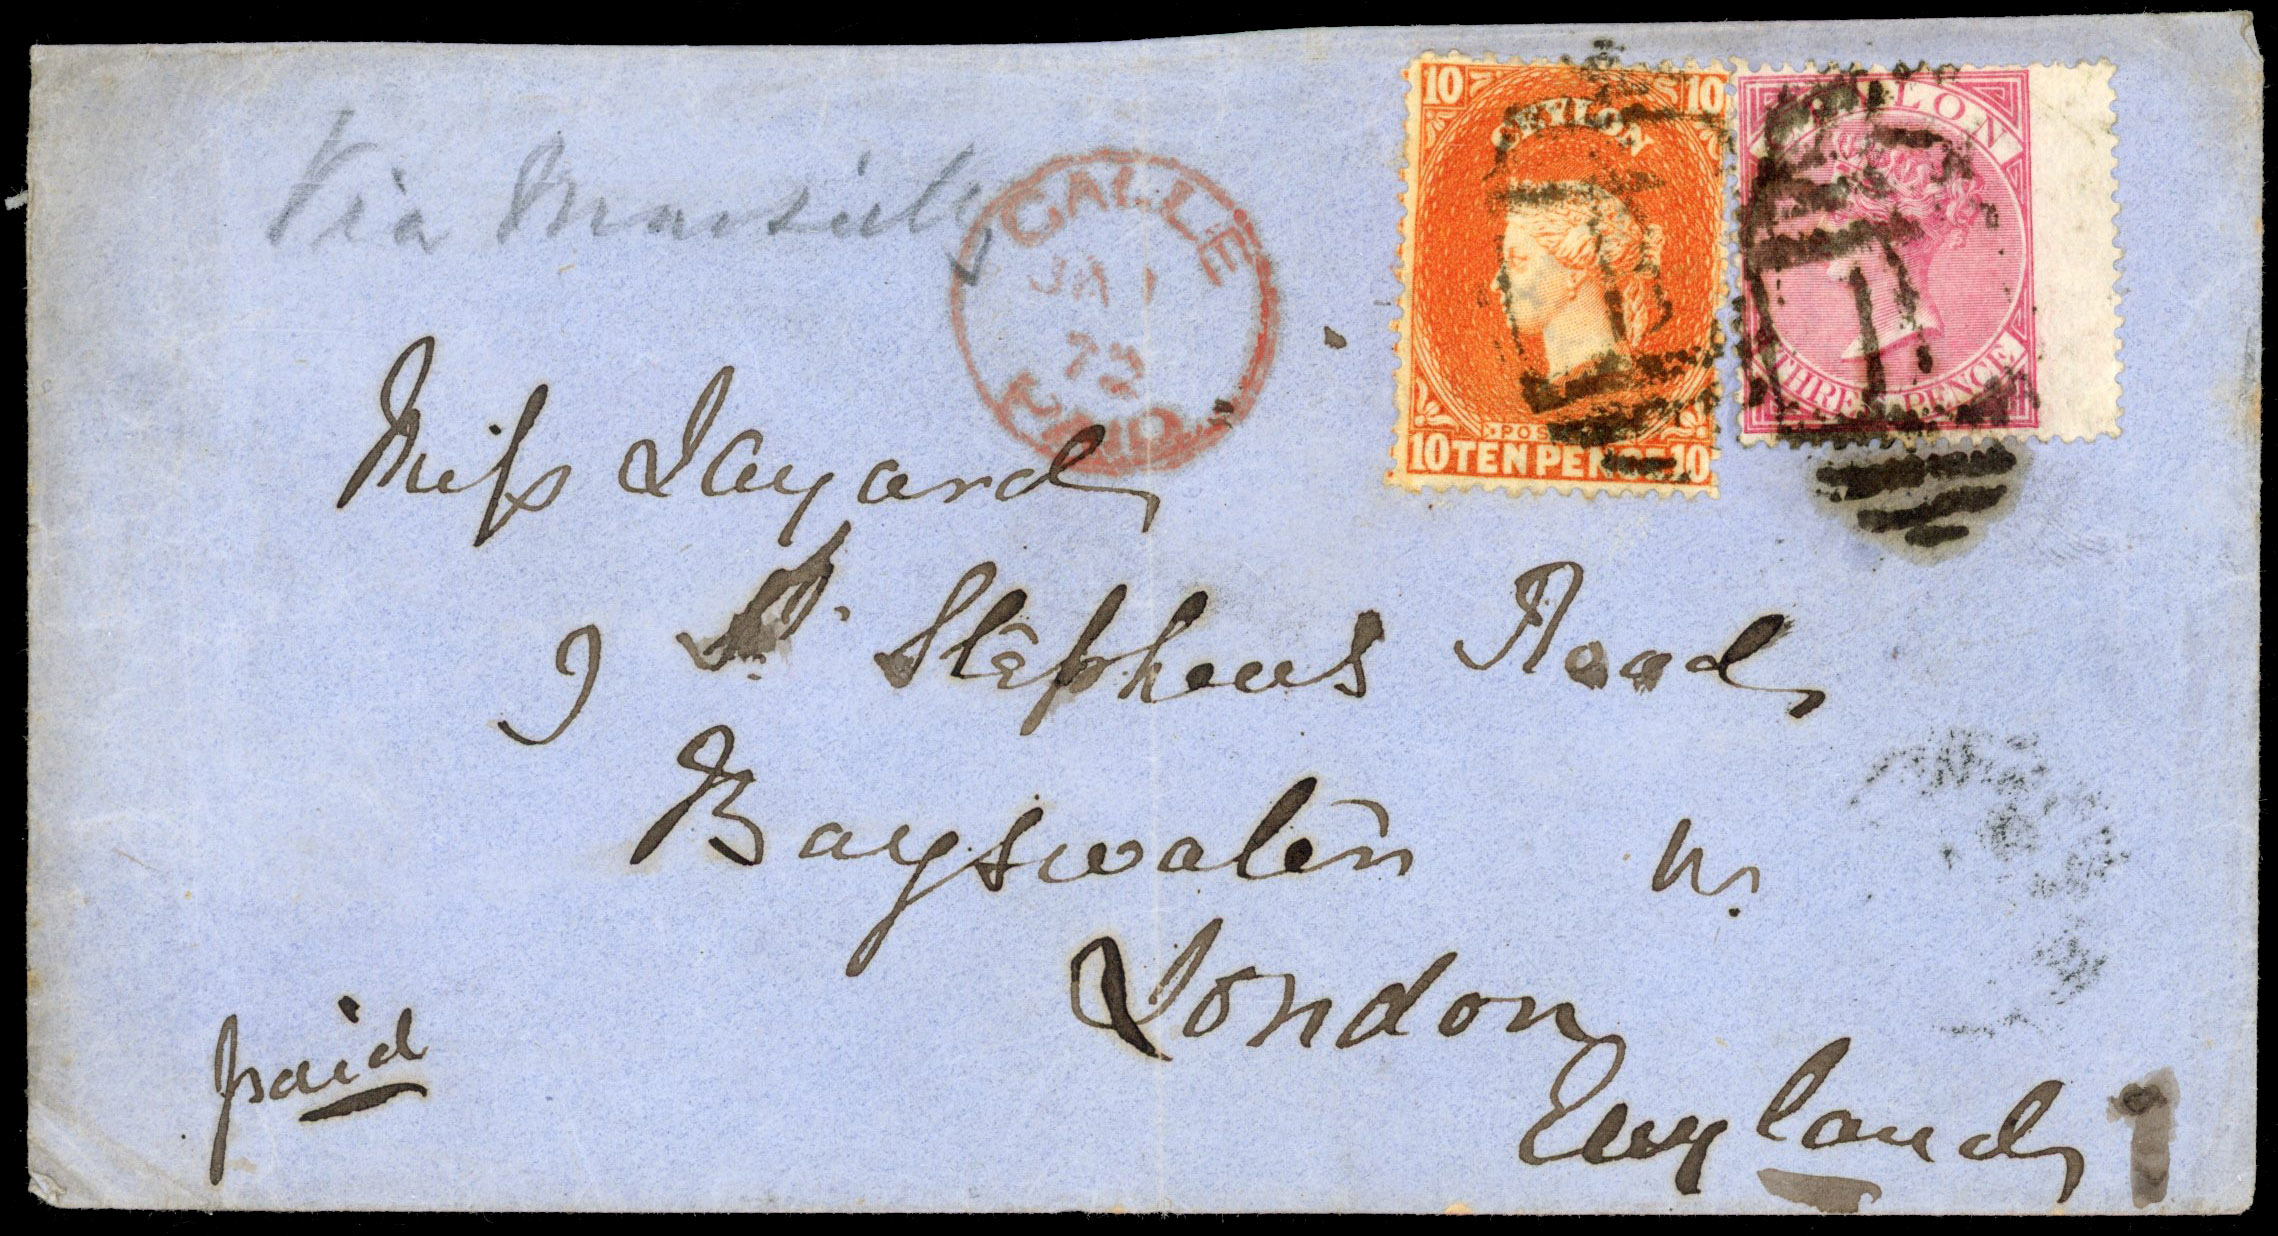 Via Marseilles
GALLE
JA 1
72
PAID
10 10
CEYLON
POS
10 TEN PENCE 10
CEYLON
THREE PENCE
Miss Layard,
9 St. Stephens Road,
Bayswater W.
London
England,
paid